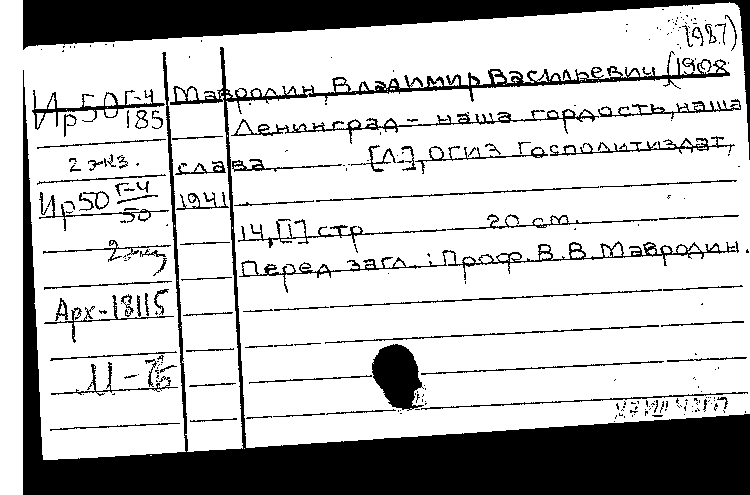 1987)
Ир50 Г-4/185 Мавродин, Владимир Васильевич (1908
Ленинград - наша гордость, наша
2 экз. слава. [Л.], ОГИЗ Госполитиздат,
Ир50 Г-4/50 1941.
14, [1] стр 20 см.
2 экз
Перед загл.: Проф. В. В. Мавродин.
Арх-18115